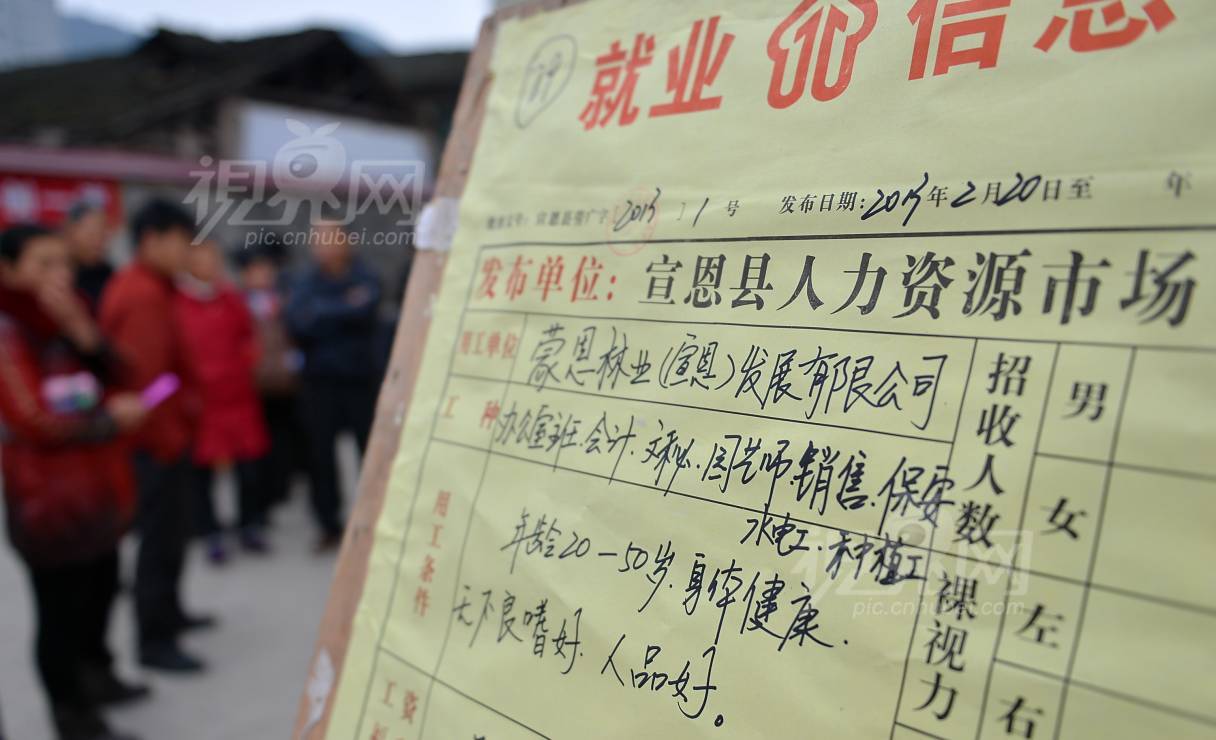 89
就业信息
视界网
pic.cnhubei.com
2013 1号 发布日期:2013年2月20日至 年
发布单位: 宣恩县人力资源市场
用工单位 蒙恩林业(宣恩)发展有限公司
工种 办公室主任.会计.文秘.园艺师.销售.保安
水电工.种植工
招收人数 男
女
用工条件 年龄20-50岁.身体健康.
无不良嗜好.人品好。
裸视力 左
右
工资
视界网
pic.cnhubei.com